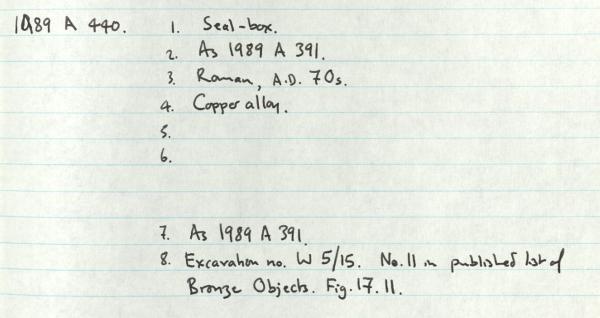 1989 A 440. 1. Seal-box.
2. As 1989 A 391.
3. Roman, A.D. 70s.
4. Copper alloy.
5.
6.
7. As 1989 A 391.
8. Excavation no. W 5/15. No. 11 in published list of
Bronze Objects. Fig. 17. 11.